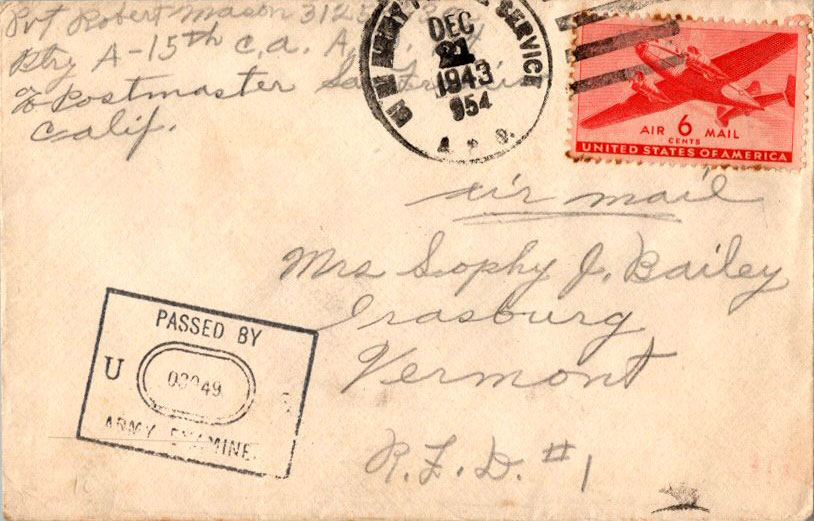 Pvt Robert Mason
Btry A-15th C.A.
℅ Postmaster San Francisco
Calif.
U.S. ARMY POSTAL SERVICE
DEC
21
1943
954
A. P. O.
AIR 6 MAIL
CENTS
UNITED STATES OF AMERICA
air mail
Mrs Sophy J. Bailey
Irasburg
Vermont
R.F.D. #1
PASSED BY
U S
49
ARMY EXAMINER